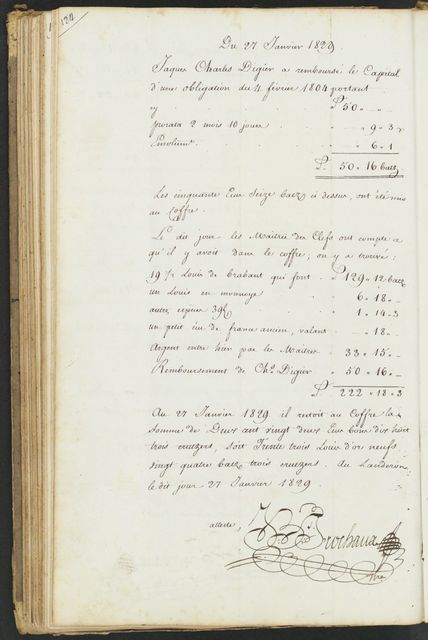 124
Du 27 Janvier 1829.
Jaques Charles Digier a remboursé le Capital
d'une obligation du 4 février 1804 portant
cy £ 50 " "
prorata 2 mois 10 jours " 9 " 3
Emolum.t " 6 " 1
£ 50 " 16 batz
Les cinquante Ecus Seize batz ci dessus, ont été mis
au Coffre.
Le dit jour les Maîtres des Clefs ont compté ce
qu'il y avoit dans le coffre; on y a trouvé:
19 Louis de brabant qui font £ 129 " 12 batz
un Louis en monnoye 6 " 18 "
autres espèces 1 " 14 " 3
un petit écu de france ancien, valant " 18 "
Argent entré hier par les Maîtres 33 " 15 "
Remboursement de Ch.s Digier 50 " 16 "
£ 222 " 18 " 3
Au 27 Janvier 1829 il restoit au Coffre la
Somme de Deux cent vingt deux Ecus bons dix huit
trois cruetzers, soit Trente trois Louis d'or neufs
vingt quatre batz trois cruetzers. Au Landeron
le dit jour 27 Janvier 1829
atteste,
Frochaux